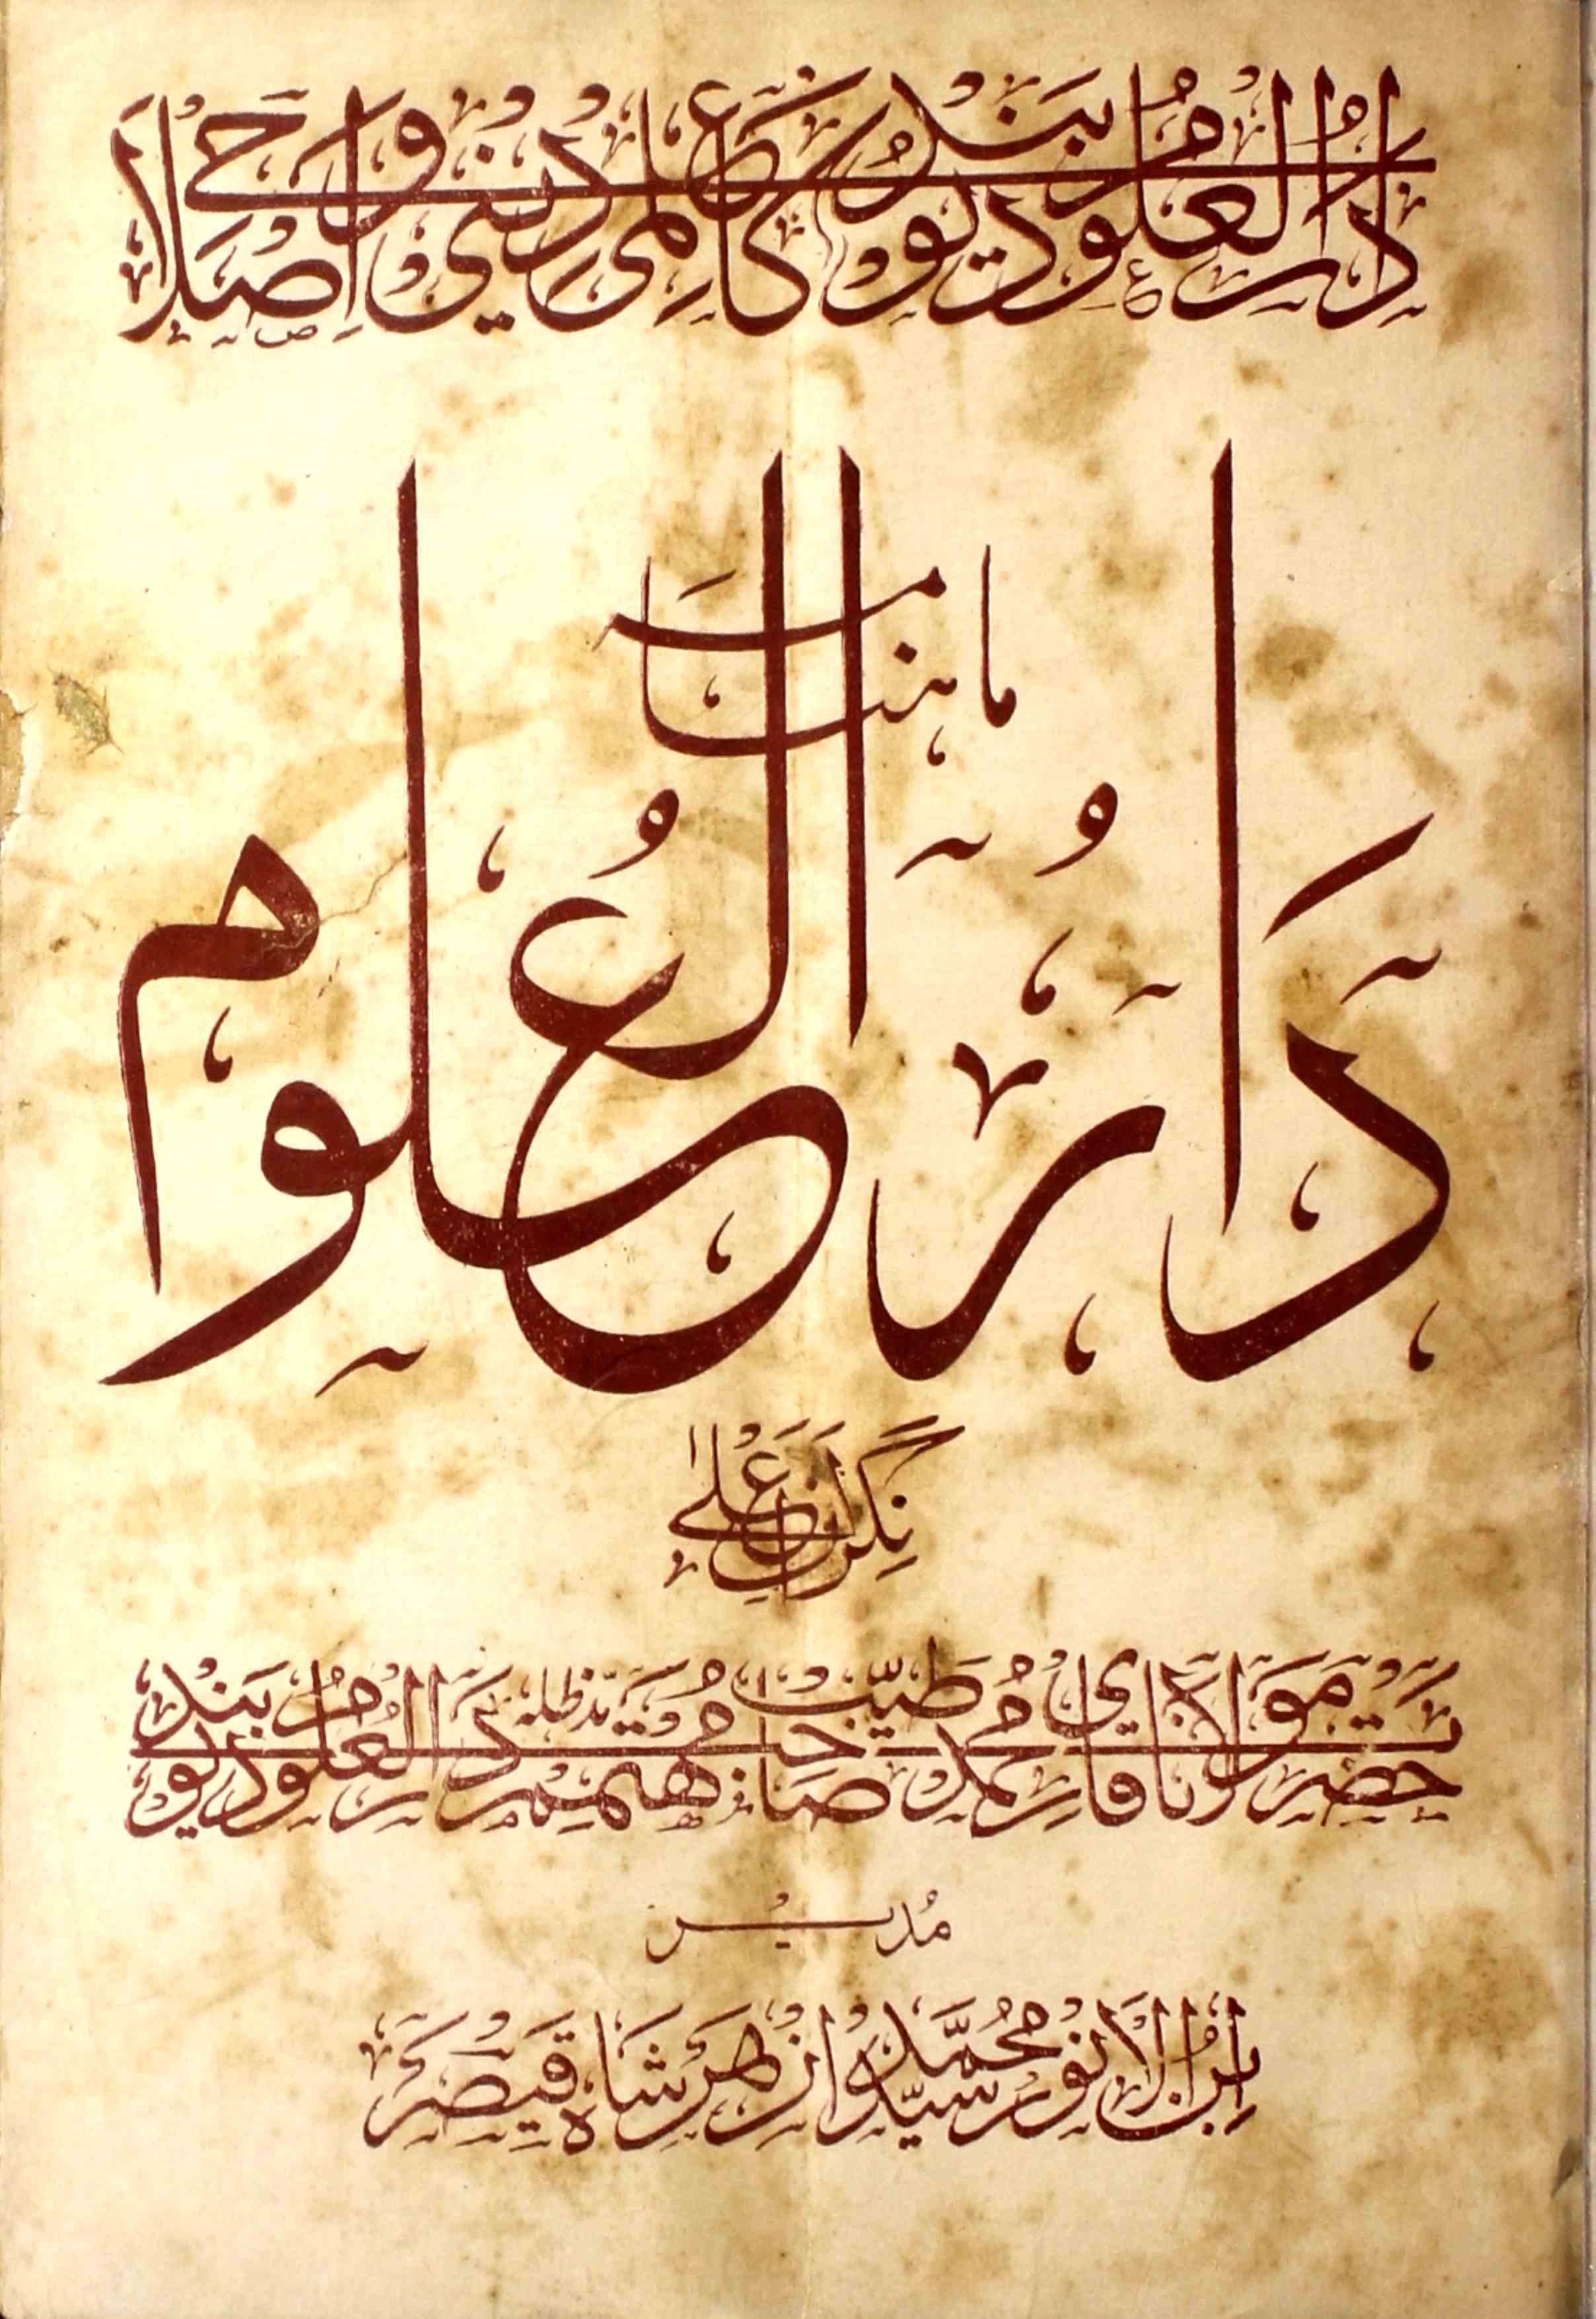 دارالعلوم دیوبند کا علمی دینی و اصلاحی
ماہنامہ
دَارُالعُلوم
نگران اعلیٰ
حضرت مولانا قاری محمد طیّب صاحب مدظلہ مہتمم دارالعلوم دیوبند
مُدیر
ابن الانور سیّد محمّد ازہر شاہ قیصر